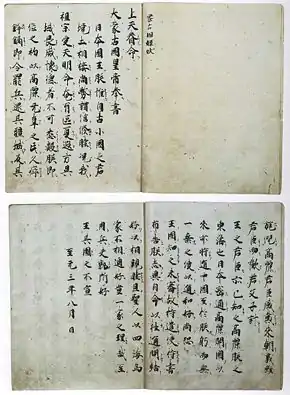 蒙古國牒状
上天眷命
大蒙古國皇帝奉書
日本國王朕惟自古小國之君
境土相接尚務講信修睦況我
祖宗受天明命奄有區夏遐方異
域畏威懷德者不可悉數朕即
位之初以高麗无辜之民久瘁
鋒鏑即令罷兵還其疆域反其
旄倪高麗君臣感戴来朝義雖
君臣而歡若父子計
王之君臣亦已知之高麗朕之
東藩也日本密邇高麗開國以
来亦時通中國至於朕躬而無
一乗之使以通和好尚恐
王國知之未審故特遣使持書
布告朕志冀自今以往通問結
好以相親睦且聖人以四海為
家不相通好豈一家之理哉至
用兵夫孰所好
王其圖之不宣
至元三年八月日